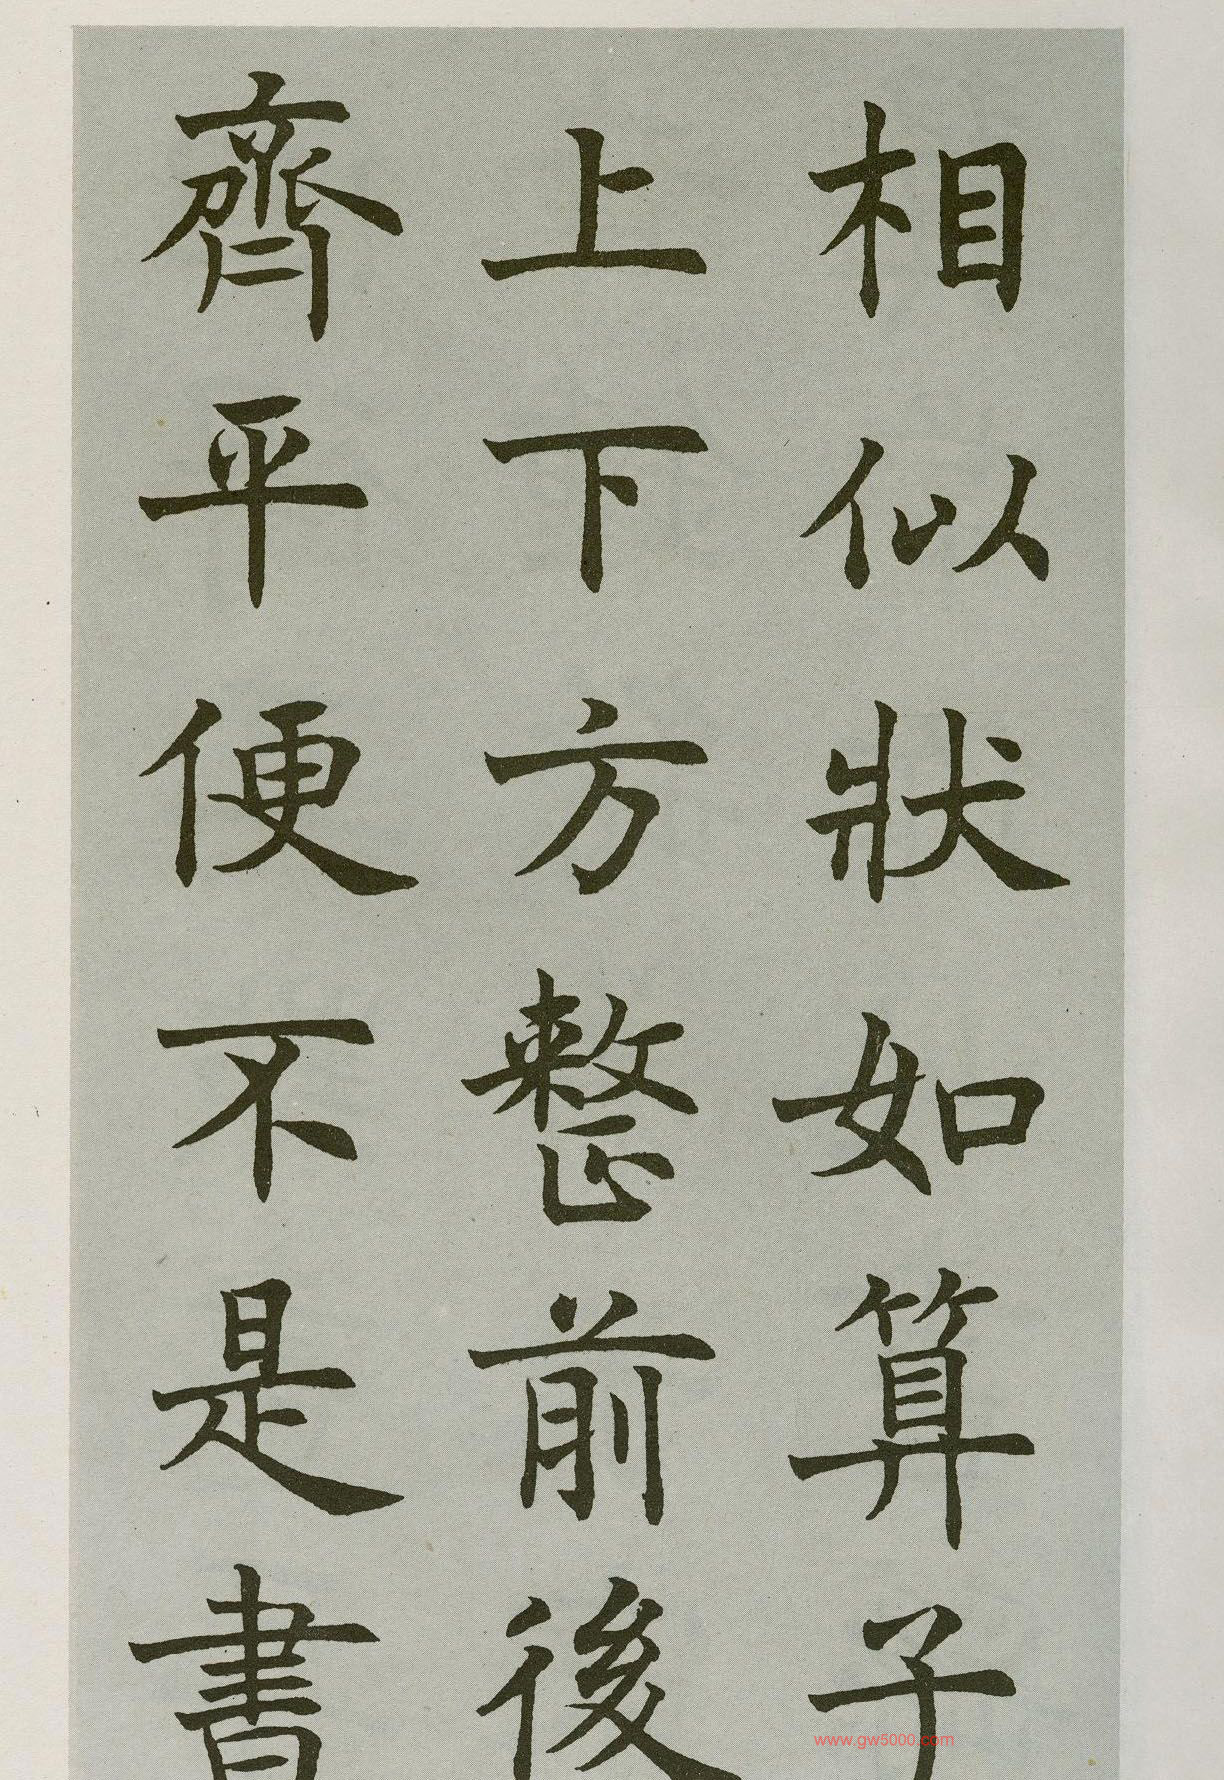 相似狀如算子
上下方整前後
齊平便不是書
www.gw5000.com